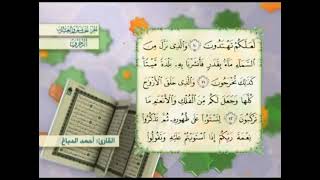 لَعَلَّكُمْ تَهْتَدُونَ ١٠ وَالَّذِي نَزَّلَ مِنَ
السَّمَاءِ مَاءً بِقَدَرٍ فَأَنشَرْنَا بِهِ بَلْدَةً مَّيْتًا
كَذَٰلِكَ تُخْرَجُونَ ١١ وَالَّذِي خَلَقَ الْأَزْوَاجَ
كُلَّهَا وَجَعَلَ لَكُم مِّنَ الْفُلْكِ وَالْأَنْعَامِ مَا
تَرْكَبُونَ ١٢ لِتَسْتَوُوا عَلَىٰ ظُهُورِهِ ثُمَّ تَذْكُرُوا
نِعْمَةَ رَبِّكُمْ إِذَا اسْتَوَيْتُمْ عَلَيْهِ وَتَقُولُوا
القارئ: أحمد الدباغ